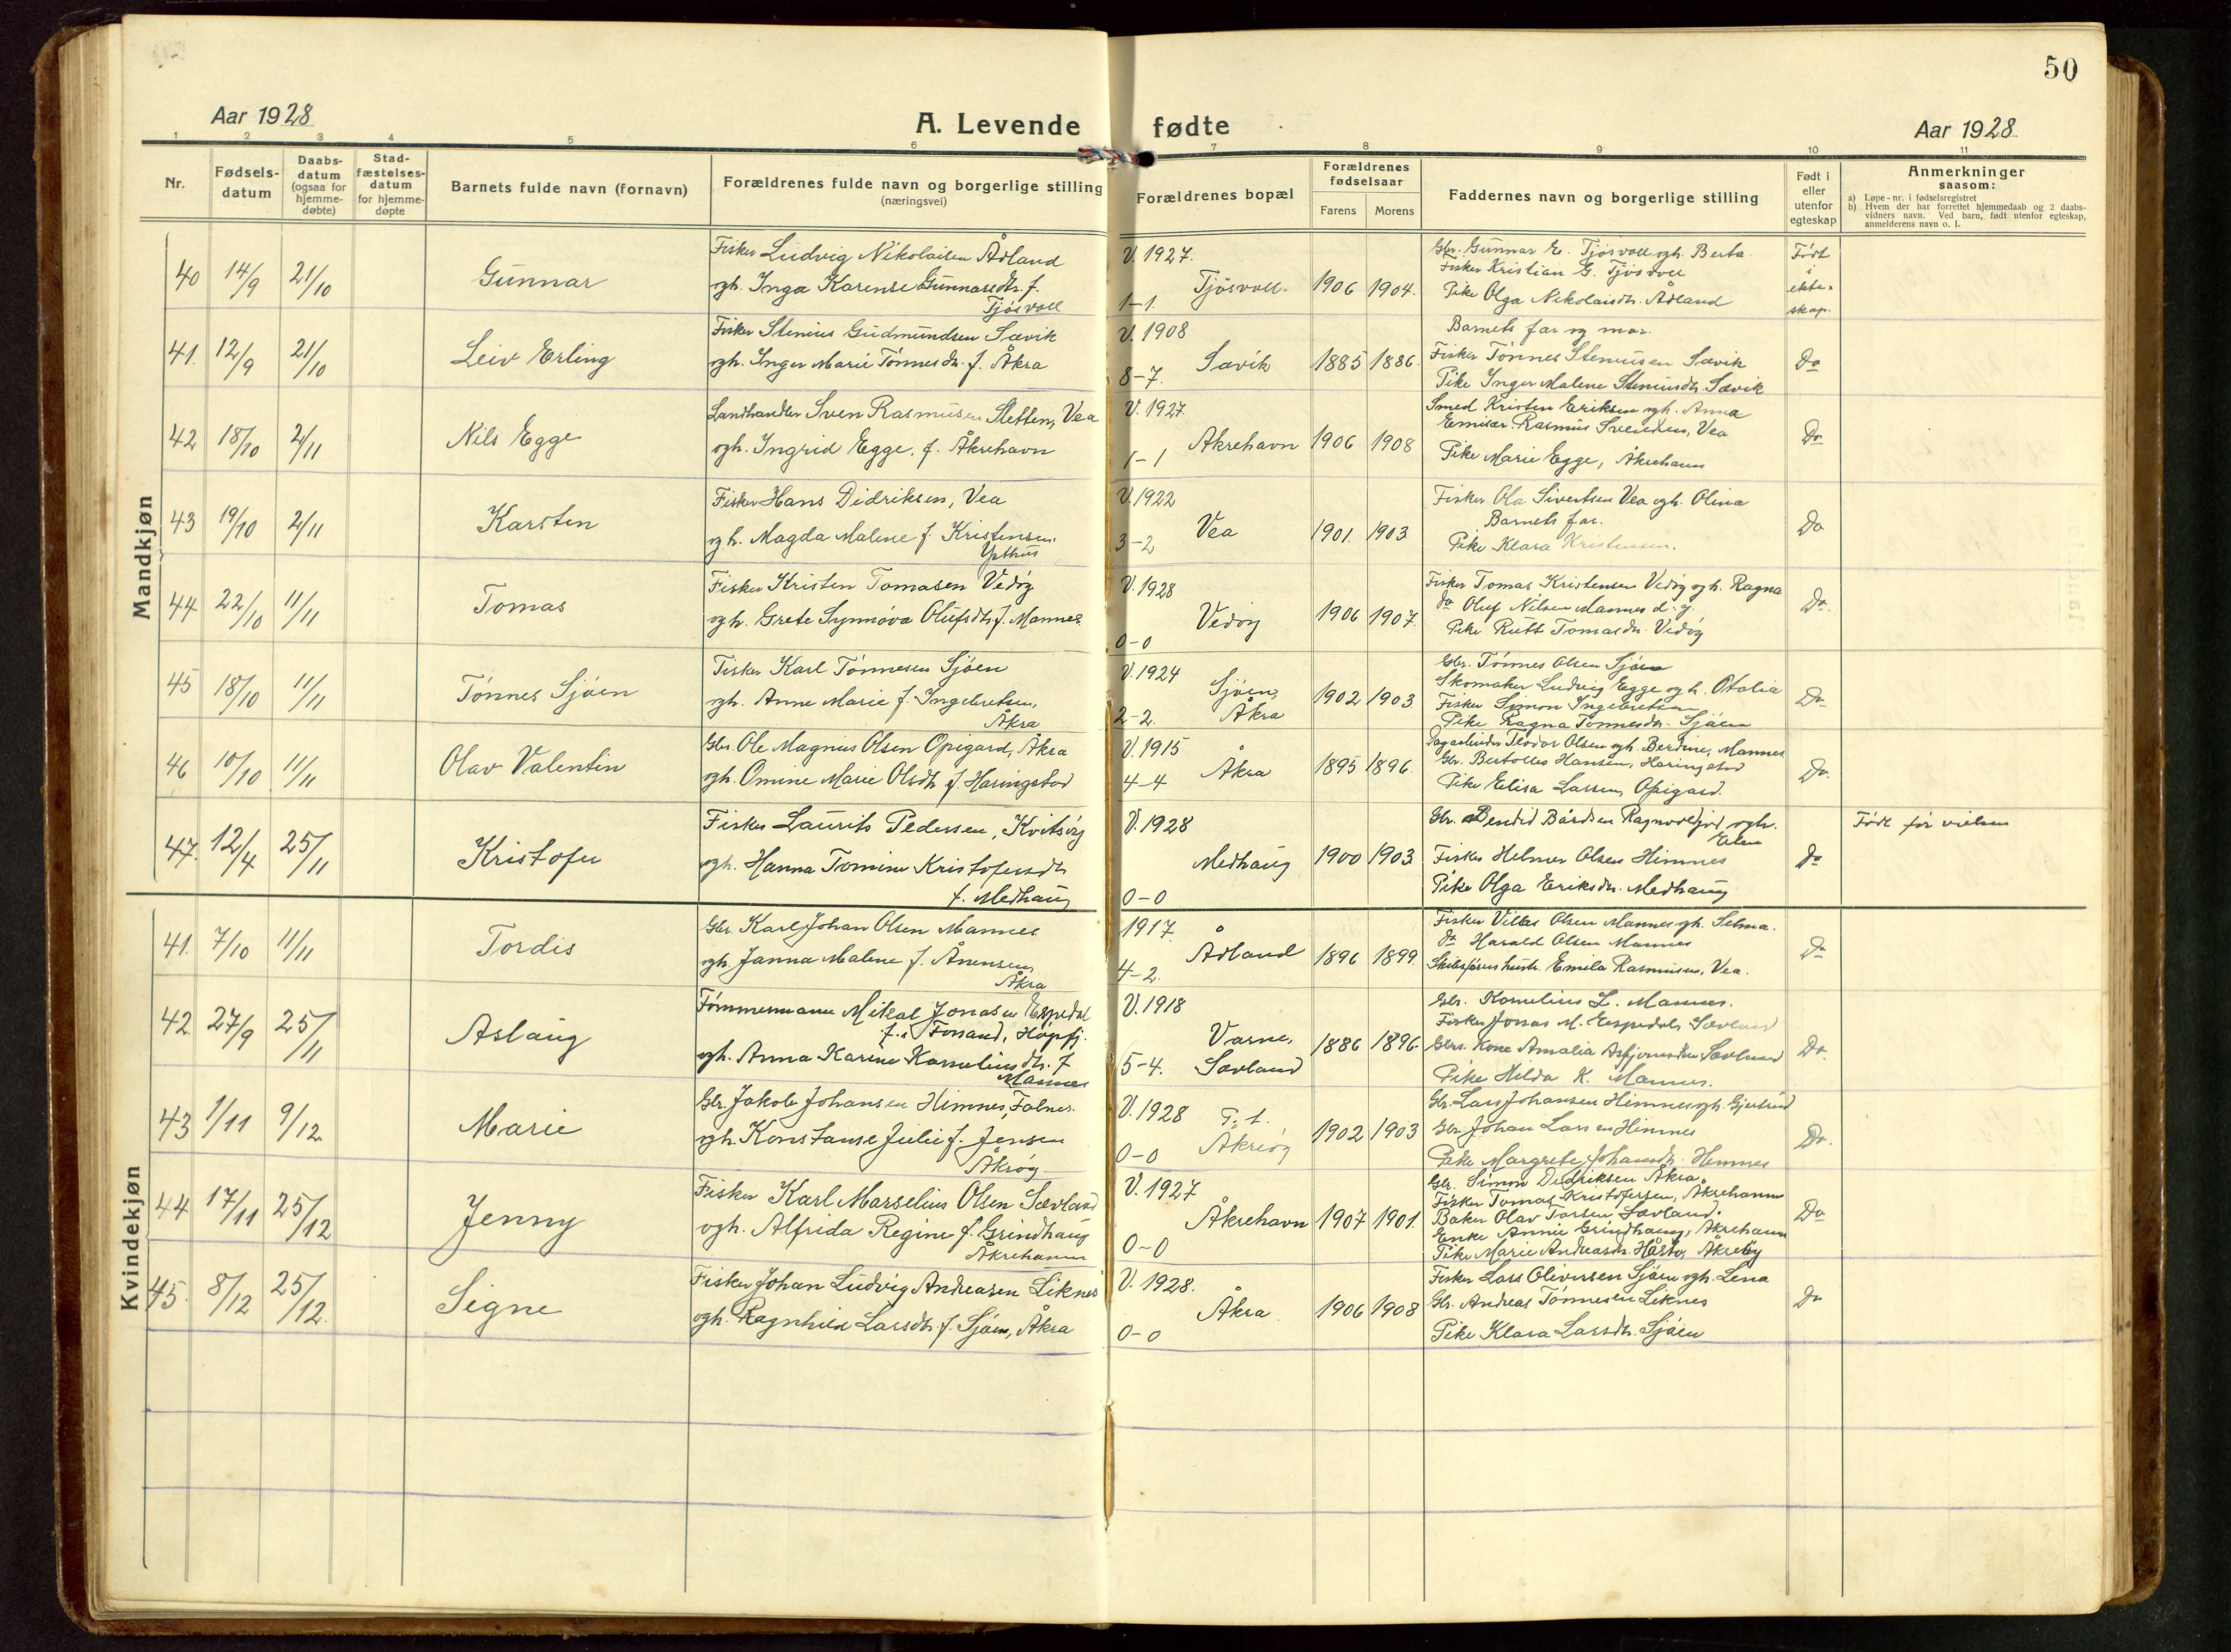 50
Aar 1928
A. Levende fødte
Aar 1928
1 2 3 4 5 6 7 8 9 10 11
Nr.
Fødsels-
datum
Daabs-
datum
(ogsaa for
hjemme-
døbte)
Stad-
fæstelses-
datum
for hjemme-
døpte
Barnets fulde navn (fornavn)
Forældrenes fulde navn og borgerlige stilling
(næringsvei)
Forældrenes bopæl
Forældrenes
fødselsaar
Farens
Morens
Faddernes navn og borgerlige stilling
Født i
eller
utenfor
egteskap
Anmerkninger
saasom:
a) Løpe-nr. i fødselsregistret
b) Hvem der har forrettet hjemmedaab og 2 daabs-
vidners navn. Ved barn, født utenfor egteskap,
anmelderens navn o. l.
Mandkjøn
40 14/9 21/10 Gunnar
Fisker Ludvig Nikolaisen Ådland
ogh. Inga Karense Gunnarsdtr. f.
Tjøsvoll
V. 1927.
1-1. Tjøsvoll. 1906 1904.
Gbr. Gunnar E. Tjøsvoll ogh. Berta
Fisker Kristian G. Tjøsvoll
Pike Olga Nikolaisdtr. Ådland
Født
i
ekte-
skap.
41. 12/9 21/10 Leiv Erling
Fisker Stenius Gudmundsen Sævik
ogh. Inger Marie Tønnesdtr. f. Åkra
V. 1908
8-7. Sævik 1885 1886.
Barnets far og mor.
Fisker Tønnes Steniusen Sævik
Pike Inger Malene Steniusdtr. Sævik
Do
42 18/10 2/11 Nils Egge
Landhandler Sven Rasmusen Sletten, Vea
ogh. Ingrid Egge, f. Åkrehavn
V. 1927.
1-1 Åkrehavn 1906 1908
Smed Kristen Eriksen ogh. Anna
Emisær Rasmus Svendsen, Vea
Pike Marie Egge, Åkrehavn
Do
43 19/10 2/11 Karsten
Fisker Hans Didriksen, Vea
ogh. Magda Malene f. Kristensen.
V. 1922
3-2 Vea 1901. 1903
Fisker Ola Sivertsen Vea ogh. Olina
Barnets far.
Pike Klara Kristensen.
Do
44 22/10 11/11 Tomas
Fisker Kristen Tomasen Vedøy
ogh. Grete Synnøva Olufsdtr. f. Mannes
V. 1928
0-0 Vedøy 1906 1907.
Fisker Tomas Kristensen Vedøy ogh. Ragna
do Oluf Nilsen Mannes d. y.
Pike Rutt Tomasdtr. Vedøy
Do.
45 18/10 11/11 Tønnes Sjøen
Fisker Karl Tønnesen Sjøen
ogh. Anne Marie f. Ingebretsen,
Åkra
V. 1924
2-2. Sjøen, Åkra 1902 1903
Gbr. Tønnes Olsen Sjøen
Skomaker Ludvig Egge ogh. Otalia
Fisker Simon Ingebretsen
Pike Ragna Tønnesdtr. Sjøen
Do
46 10/10 11/11 Olav Valentin
Gbr Ole Magnus Olsen Opigard, Åkra
ogh. Omine Marie Olsdtr f. Haringstad
V. 1915
4-4 Åkra 1895 1896.
Dagarbeider Teodor Olsen ogh. Berdine, Mannes
Gbr. Bertolles Hansen, Haringstad
Pike Elisa Larsen, Opigard.
Do.
47. 12/4 25/11 Kristofer
Fisker Laurits Pedersen, Kvitsøy
ogh. Hanna Tomine Kristofersdtr
f. Medhaug
V. 1928
0-0 Medhaug 1900 1903
Fisker Helmer Olsen Himnes
Pike Olga Eriksdtr. Medhaug
Do
Født før vielsen
Kvindekjøn
41. 7/10 11/11 Tordis
Gbr. Karl Johan Olsen Mannes
ogh. Janna Malene f. Ånensen,
Åkra
1917.
4-2. Ådland 1896 1899.
Fisker Villas Olsen Mannes ogh. Selma.
do Harald Olsen Mannes
Skibsførers hustr. Emila Rasmusen, Vea.
Do
42. 27/9 25/11 Aslaug
Tømmermann Mikal Jonasen Espedal
f. i Forsand, Høgsfj.
ogh. Anna Karine Korneliusdtr. f.
Mannes
V. 1918
5-4. Varne, Sævland 1886 1896.
Gbr. Kornelius L. Mannes.
Fisker Jonas M. Espedal, Sævland
Gbrs. Kone Amalia Asbjørnsdtr Sævland
Pike Hilda K. Mannes.
Do.
43 1/11 9/12 Marie
Gbr. Jakob Johansen Himnes, Falnes.
ogh. Konstanse Julie f. Jensen
Åkrøy
V. 1928
0-0 F. t. Åkrøy 1902 1903
Gbr. Lars Johansen Himnes ogh. Gjertrud
Gbr. Johan Larsen Himnes
Pike Margrete Johansdtr. Himnes
Do.
44 17/11 25/12 Jenny
Fisker Karl Marselius Olsen Sævland
ogh. Alfrida Regine f. Grindhaug
Åkrehavn
V. 1927
0-0 Åkrehavn 1907 1901.
Gbr. Simon Didriksen Åkra.
Fisker Tomas Kristofersen, Åkrehavn
Baker Olav Torsen Sævland.
Enke Annie Grindhaug, Åkrehavn
Pike Marie Andreasdtr. Håstø, Åkrøy
Do
45. 8/12 25/12. Signe
Fisker Johan Ludvig Andreasen Liknes
ogh. Ragnhild Larsdtr. f. Sjøen, Åkra
V. 1928.
0-0 Åkra 1906 1908
Fisker Lars Oliversen Sjøen ogh. Lena
Gbr. Andreas Tønnesen Liknes
Pike Klara Larsdtr. Sjøen
Do